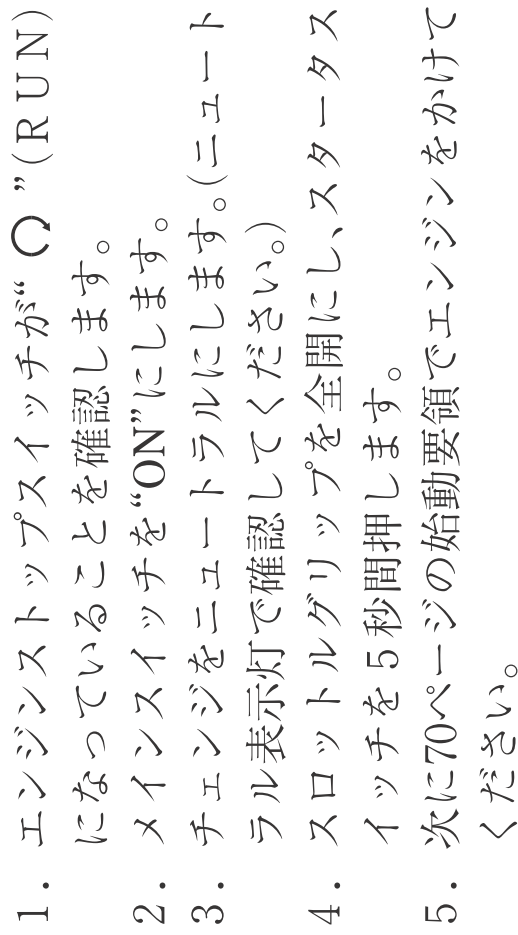 1. エンジンストップスイッチが“ ↻ ”(RUN)
になっていることを確認します。
2. メインスイッチを“ON”にします。
3. チェンジをニュートラルにします。(ニュート
ラル表示灯で確認してください。)
4. スロットルグリップを全開にし、スタータス
イッチを 5 秒間押します。
5. 次に70ページの始動要領でエンジンをかけて
ください。